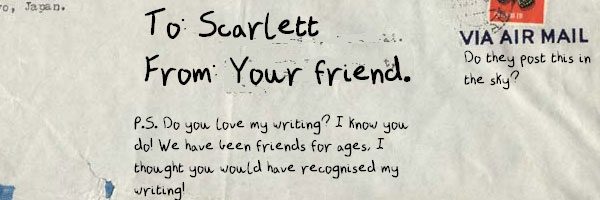 yo, Japan.
To: Scarlett
From: Your friend.
VIA AIR MAIL
Do they post this in
the sky?
P.S. Do you love my writing? I know you
do! We have been friends for ages, I
thought you would have recognised my
writing!